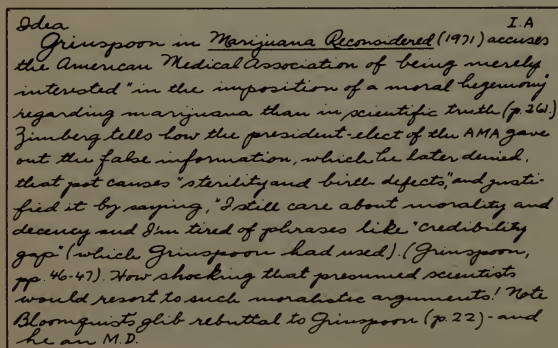 Idea I.A
Grinspoon in Marijuana Reconsidered (1971) accuses
the American Medical Association of being merely
interested "in the imposition of a moral hegemony"
regarding marijuana than in scientific truth (p. 261.)
Zimberg tells how the president-elect of the AMA gave
out the false information, which he later denied,
that pot causes "sterility and birth defects," and justi-
fied it by saying, "I still care about morality and
decency and I'm tired of phrases like "credibility
gap" (which Grinspoon had used). (Grinspoon,
pp. 46-47). How shocking that presumed scientists
would resort to such moralistic arguments! Note
Bloomquists glib rebuttal to Grinspoon (p. 22) - and
he an M.D.